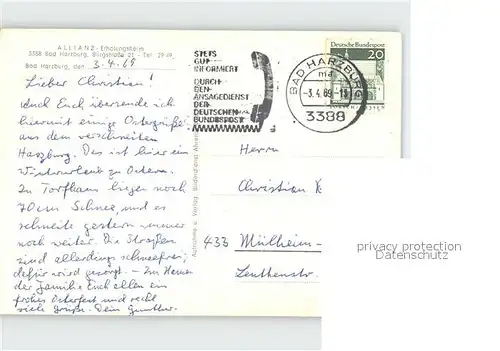 ALLIANZ-Erholungsheim
3388 Bad Harzburg, Burgstraße 21 - Tel. 29 49
Bad Harzburg, den 3.4.69
Lieber Christian!
Auch Euch übersende ich
hiermit einige Ostergrüße
aus dem verschneiten
Harzburg. Das ist hier ein
Winterurlaub zu Ostern.
In Torfhaus liegen noch
70 cm Schnee, und es
schneite gestern immer
noch weiter. Die Straßen
sind allerdings schneefrei;
dafür wird gesorgt. - Im Namen
der Familie Euch allen ein
frohes Osterfest und recht
viele Grüße. Dein Günther.
Aufnahme u. Verlag:
STETS
GUT
INFORMIERT
DURCH
DEN
ANSAGEDIENST
DER
DEUTSCHEN
BUNDESPOST
BAD HARZBURG
ma
-3.4.69-
3388
Deutsche Bundespost
20
Herrn
Christian K
433 Mülheim-
Leuthenstr.
privacy protection
Datenschutz